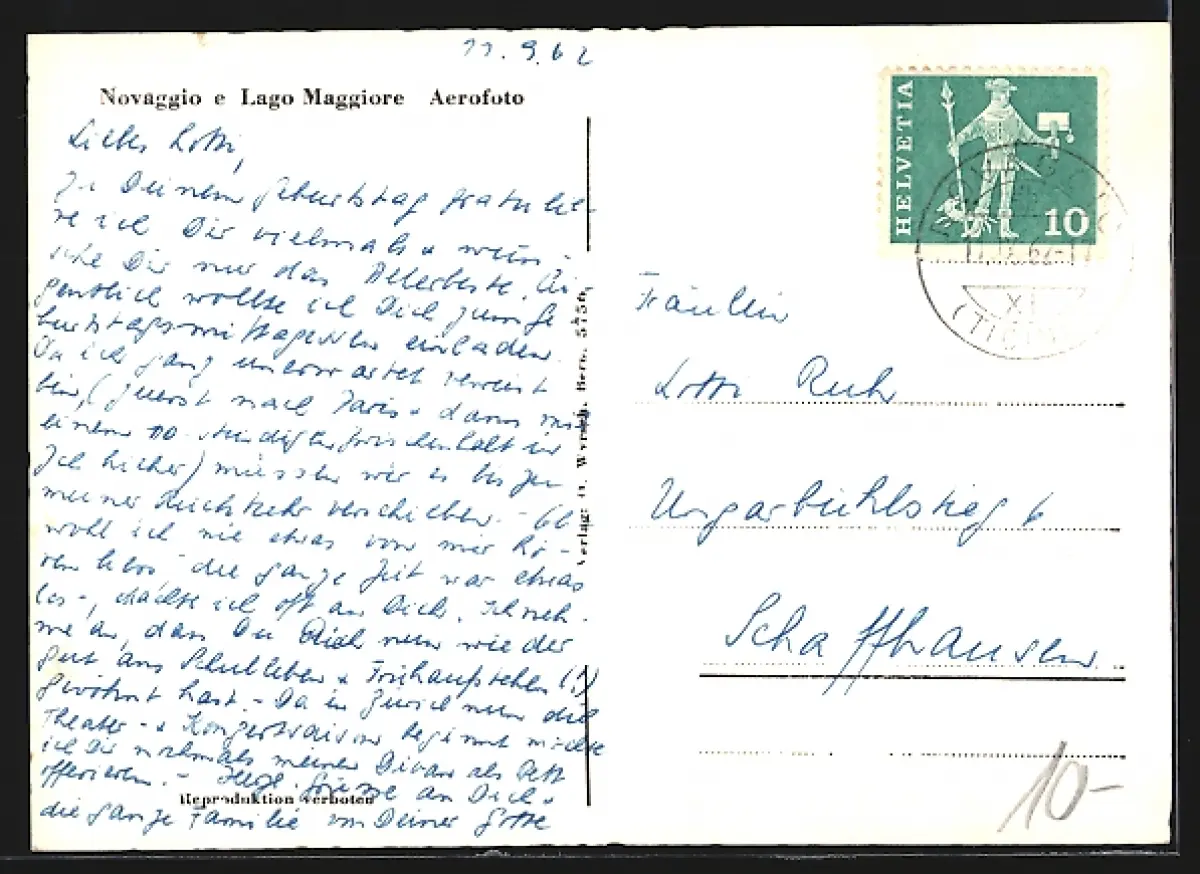 11.9.62
Novaggio e Lago Maggiore Aerofoto
Liebes Lotti,
zu Deinem Geburtstag gratulie-
re ich Dir vielmals & wün-
sche Dir nur das Allerbeste. Ei
gentlich wollte ich Dich zum Ge
burtstagsmittagessen einladen.
Da ich ganz unerwartet verreist
bin, (zuerst nach Paris & dann mit
einem 10-stündigen Zwischenhalt in
Zch hieher) müssen wir es bis zu
meiner Rückkehr verschieben. - Ob
wohl ich nie etwas von mir hö-
ren liess - die ganze Zeit war etwas
los -, dachte ich oft an Dich. Ich neh-
me an, dass Du Dich nun wieder
gut ans Schulleben & Frühaufstehen (!)
gewöhnt hast. - Da in Zürich nun die
Theater- & Konzertsaison beginnt möchte
ich Dir nochmals meinen Divan als Bett
offerieren. - Herzl. Grüsse an Dich &
die ganze Familie von Deiner Gotte
Reproduktion verboten
Bern. 5156
HELVETIA
10
(TICINO)
Fräulein
Lotti Ruh
Ungarbühlstieg 6
Schaffhausen
10-